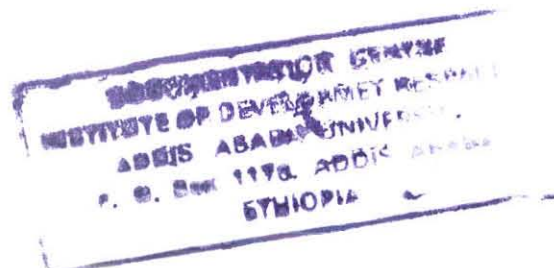 DOCUMENTATION CENTRE
INSTITUTE OF DEVELOPMET RESEA
ADDIS ABABA UNIVERS
P. O. Box 1176 ADDIS ABABA
ETHIOPIA